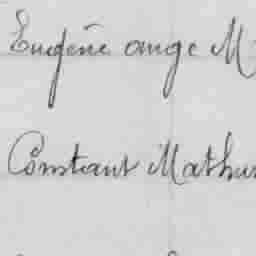 Eugène ange M
Constant Mathur